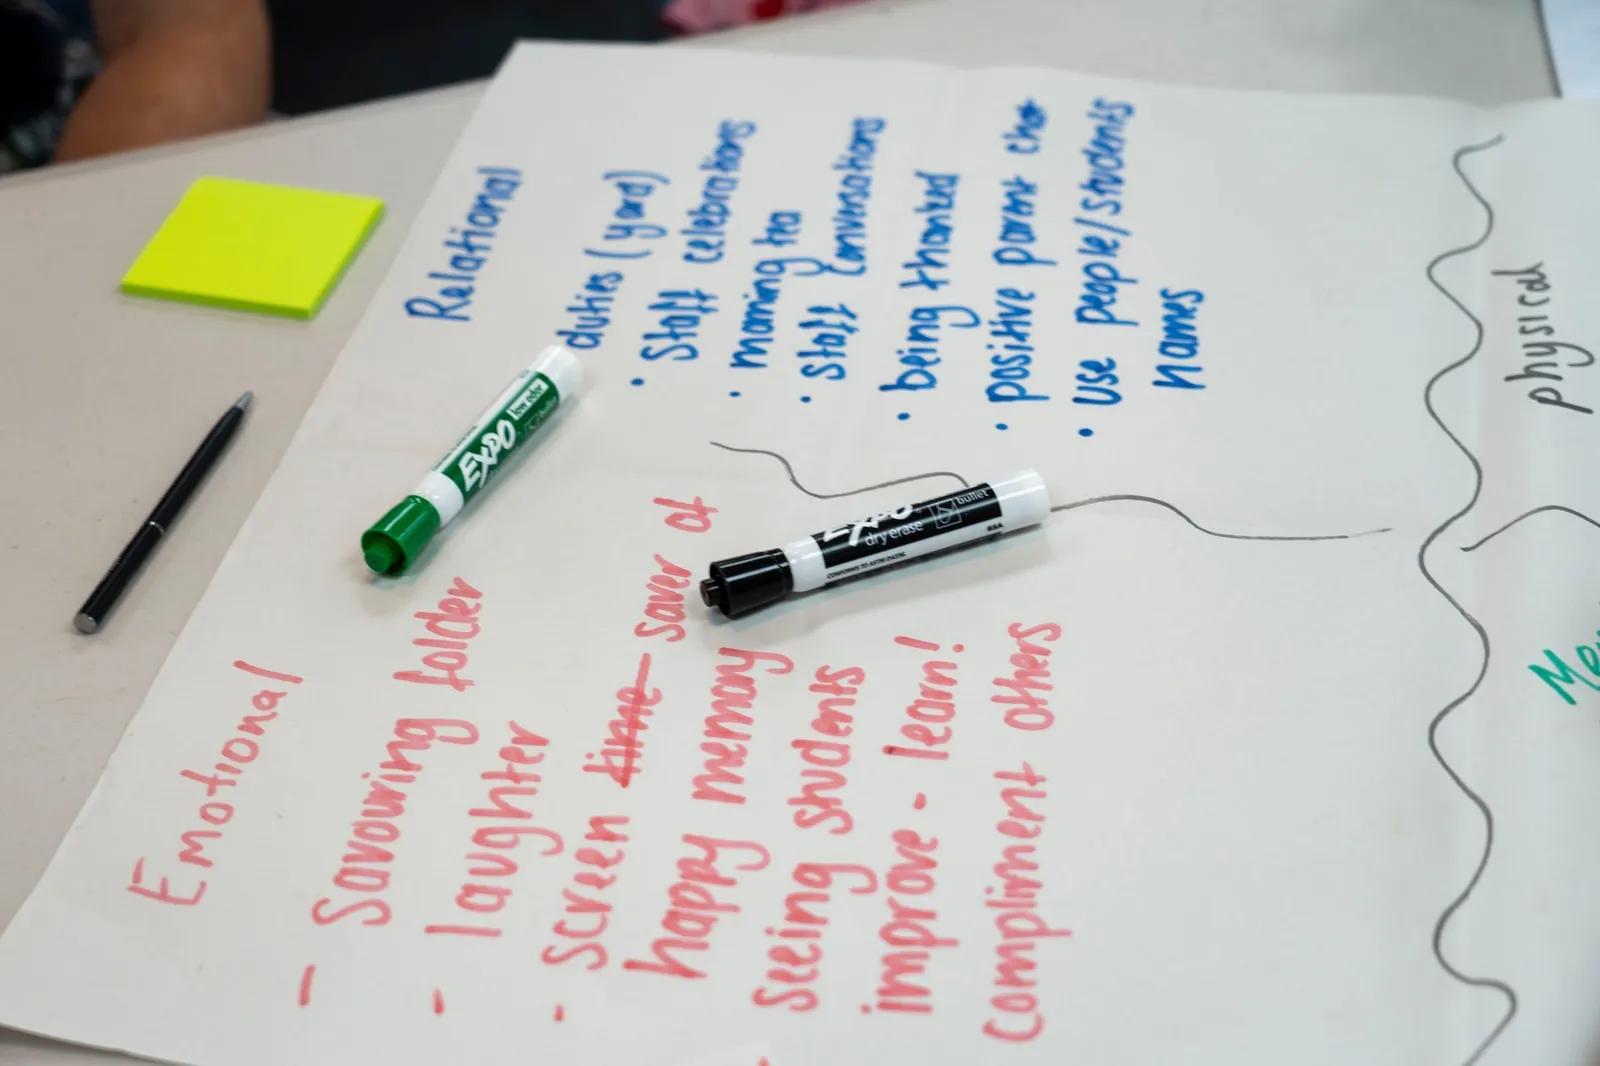 Relational
duties (yard)
• Staff celebrations
• morning tea
• staff conversations
• being thanked
• positive parent chat
• use people/students
names
Emotional
- Savouring folder
- laughter
- screen time saver of
happy memory
seeing students
improve - learn!
compliment others
physical
EXPO
low odor
EXPO
dry erase
bullet
USA
CONFORMS TO ASTM D4236